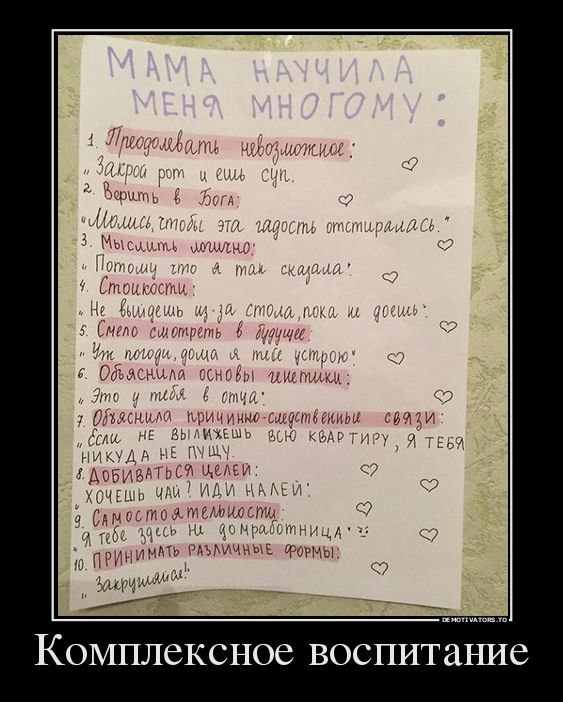 МАМА НАУЧИЛА
МЕНЯ МНОГОМУ:
1. Преодолевать невозможное:
„ Закрой рот и ешь суп.
2. Верить в Бога:
"Молись, чтобы эта гадость отстиралась."
3. Мыслить логично:
„ Потому что я так сказала".
4. Стойкости:
„ Не выйдешь из-за стола, пока не доешь".
5. Смело смотреть в будущее:
„ Уж погоди, дома я тебе устрою"
6. Объяснила основы генетики:
„ Это у тебя в отца"
7. Объяснила причинно-следственные связи:
„ Если не вылижешь всю квартиру, я тебя
никуда не пущу.
8. Добиваться целей:
„ Хочешь чай? Иди налей".
9. Самостоятельности:
„Я тебе здесь не домработница"
10. Принимать различные формы:
„ Закругляйся!"
DEMOTIVATORS.TO
Комплексное воспитание